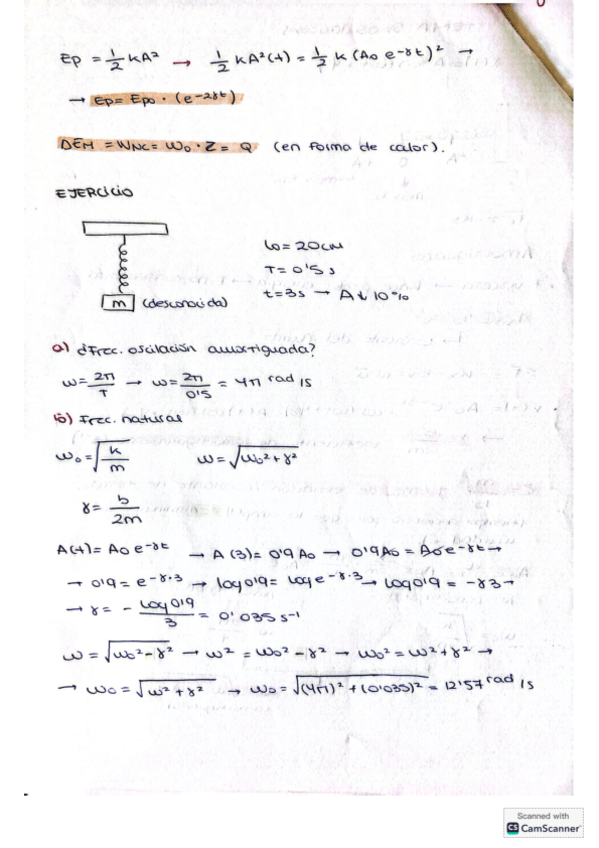 Ep = 1/2 KA² → 1/2 KA²(t) = 1/2 K (A₀ e^-γt)² →
→ Ep = Ep₀ · (e^-2γt)
DEM = WNC = W₀ · Z = Q (en forma de calor).
EJERCICIO
l₀ = 20cm
T = 0'5 s
t = 3s → A↓ 10%
m (desconocida)
a) ¿Frec. oscilación amortiguada?
ω = 2π/T → ω = 2π/0'5 = 4π rad/s
b) Frec. natural
ω₀ = √(K/m) ω = √(ω₀² + γ²)
γ = b/2m
A(t) = A₀ e^-γt → A(3) = 0'9 A₀ → 0'9A₀ = A₀ e^-γt →
→ 0'9 = e^-γ·3 → log 0'9 = log e^-γ·3 → log 0'9 = -γ3 →
→ γ = - log 0'9/3 = 0'035 s⁻¹
ω = √(ω₀² - γ²) → ω² = ω₀² - γ² → ω₀² = ω² + γ² →
→ ω₀ = √(ω² + γ²) → ω₀ = √((4π)² + (0'035)²) = 12'57 rad/s
Scanned with
CS CamScanner